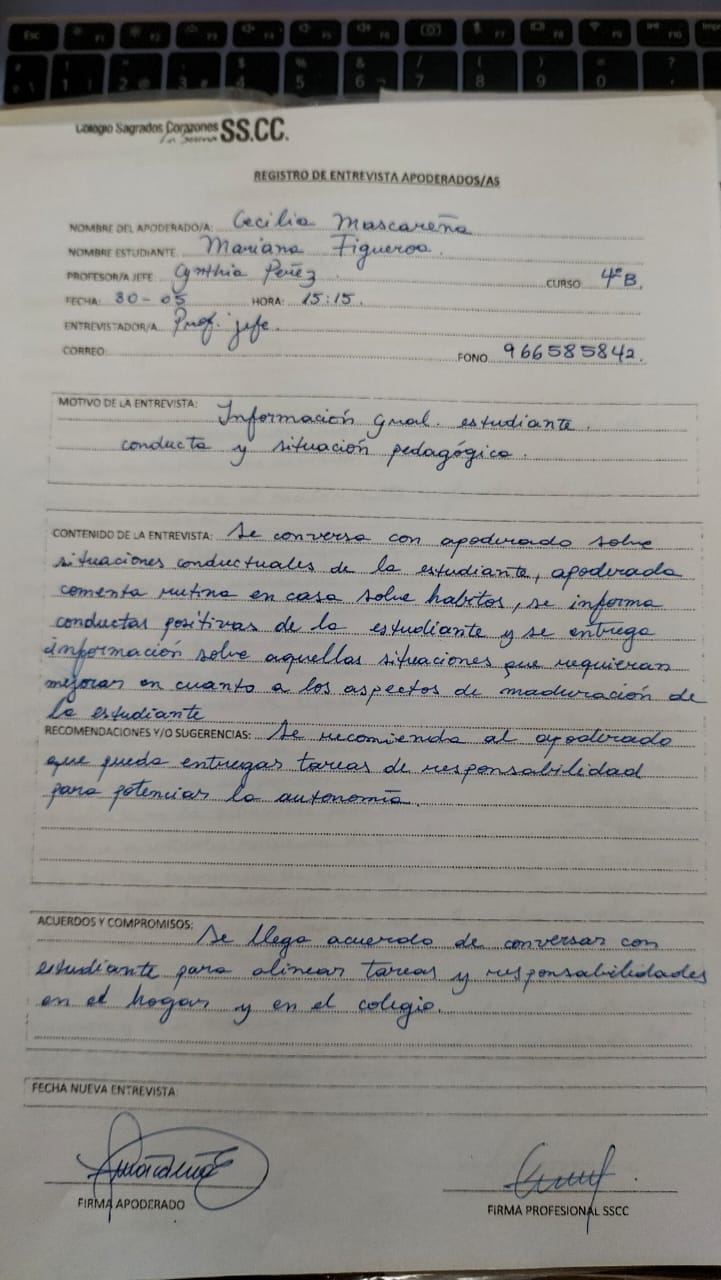 Colegio Sagrados Corazones SS.CC.
La Serena
REGISTRO DE ENTREVISTA APODERADOS/AS
NOMBRE DEL APODERADO/A: Cecilia Mascareña
NOMBRE ESTUDIANTE: Mariana Figueroa.
PROFESOR/A JEFE: Cynthia Perez CURSO 4°B.
FECHA: 30-05 HORA: 15:15.
ENTREVISTADOR/A Prof. jefe.
CORREO: FONO 966585842.
MOTIVO DE LA ENTREVISTA: Información gnal. estudiante.
conducta y situación pedagógica.
CONTENIDO DE LA ENTREVISTA: Se conversa con apoderado sobre
situaciones conductuales de la estudiante, apoderada
comenta rutina en casa sobre habitos, se informa
conductas positivas de la estudiante y se entrega
información sobre aquellas situaciones que requieran
mejorar en cuanto a los aspectos de maduración de
la estudiante
RECOMENDACIONES Y/O SUGERENCIAS: Se recomienda al apoderado
que pueda entregar tareas de responsabilidad
para potenciar la autonomía.
ACUERDOS Y COMPROMISOS: Se llega acuerdo de conversar con
estudiante para alinear tareas y responsabilidades
en el hogar y en el colegio.
FECHA NUEVA ENTREVISTA
FIRMA APODERADO
FIRMA PROFESIONAL SSCC